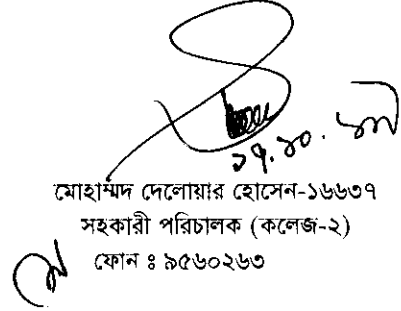 ১৭.১০.১৮
মোহাম্মদ দেলোয়ার হোসেন-১৬৬৩৭
সহকারী পরিচালক (কলেজ-২)
ফোন ঃ ৯৫৬০২৬৩